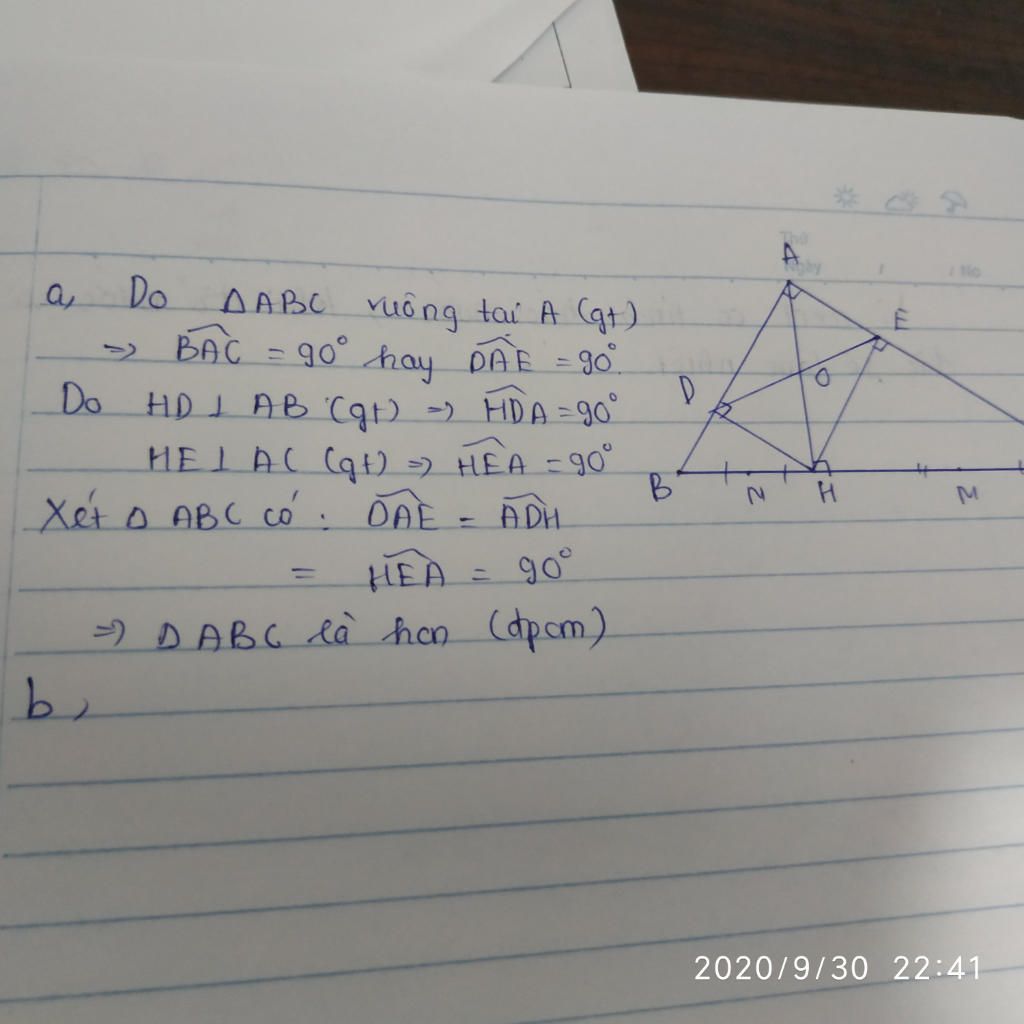 Thứ
Ngày / / No
A
E
D
O
B
N
H
M
a, Do ΔABC vuông tại A (gt)
=> BAC = 90° hay DAE = 90°.
Do HD ⊥ AB (gt) => HDA = 90°
HE ⊥ AC (gt) => HEA = 90°
Xét Δ ABC có : DAE = ADH
= HEA = 90°
=> DABC là hcn (đpcm)
b,
2020/9/30 22:41